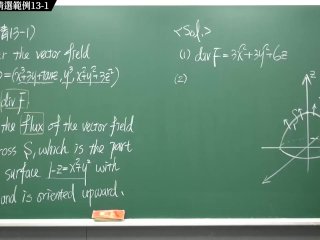 精選範例13-1
13-1)
er the vector field
)=(x³+3y+tanz, y³, x²+y²+3z²)
div F
the flux of the vector field
ross S, which is the part
surface 1-z=x²+y² with
and is oriented upward.
<Sol.>
(1) div F = 3x²+3y²+6z
(2)